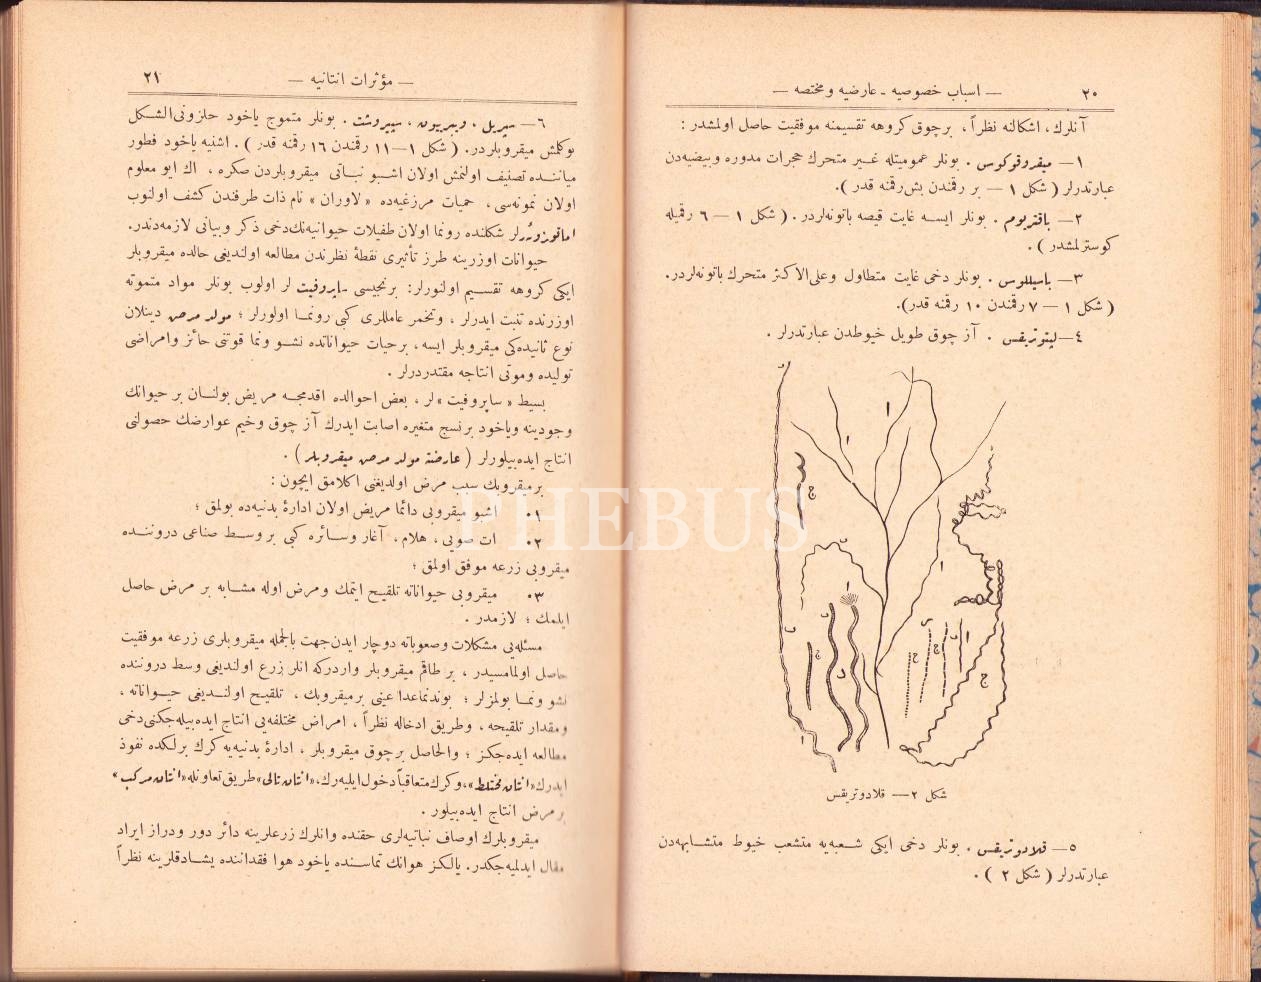 ٢٠
— اسباب خصوصیه ـ عارضیه و مختصه —
آنلرك، اشكالنه نظراً ، برچوق كروهه تقسیمنه موفقیت حاصل اولمشدر :
١— میقروقوكوس . بونلر عمومیتله غـیر متحرك حجرات مدوره وبیضیه‌دن
عبارتدرلر ( شكل ١ — بر رقمندن بش‌رقمنه قدر ).
٢— باقتریوم . بونلر ایسـه غایت قیصه باتونه‌لردر . ( شكل ١ — ٦ رقمیله
كوسترلمشدر ) .
٣— باسیللوس . بونلر دخی غایت متطاول وعلی‌الاكثر متحرك باتونه‌لردر.
( شكل ١ — ٧ رقمندن ١٠ رقمنه قدر).
٤—لپتوتریقس . آز چوق طویل خیوطدن عبارتدرلر .
شكل ٢— قلادوتریقس
٥— قلادوتریقس . بونلر دخی ایكی شـعبه‌یه متشعب خیوط متشـابهه‌دن
عبارتدرلر ( شكل ٢ ) .
— مؤثرات انتانیه —
٢١
٦— سپریل ، ویبریون ، سپیروشت . بونلر متموج یاخود حلزونی‌الشـكل
بوكلمش میقروبلردر. ( شكل ١—١١ رقمندن ١٦ رقمنه قدر ) . اشنیه یاخود فطور
میاننـده تصنیف اولنمش اولان اشـبو نبـاتی میقروبلردن صكره ، اك ایو معلوم
اولان نمونه‌سی ، حمیات مرزغیه‌ده « لاوران » نام ذات طرفندن كشف اولنوب
لر شكلنده رونما اولان طفیلات حیوانیه‌نك‌دخی ذكر وبیانی لازمه‌دندر.
حیوانات اوزرینه طرز تأثیری نقطۀ نظرندن مطالعه اولندیغی حالده میقروبلر
ایكی كروهه تقسـیم اولنورلر: برنجیسی لر اولوب بونلر مواد متموته
اوزرنده تنبت ایدرلر ، وتخمر عامللری كبی رونمـا اولورلر ؛ مولد مرض دینلان
نوع ثانیده‌كی میقروبلر ایسه ، برحیات حیواناتده نشـو ونما قوتنی حائز وامراضی
تولیده وموتی انتاجه مقتدردرلر .
بسیط « ساپروفیت »لر ، بعض احوالده اقدمجـه مریض بولنـان بر حیوانك
وجودینه ویاخود برنسج متغیره اصابت ایدرك آز چوق وخیم عوارضك حصولنی
انتاج ایده‌بیلورلر ( عارضة مولد مرض میقروبلر ) .
برمیقروبك سبب مرض اولدیغنی اكلامق ایچون :
١٠ اشبو میقروبی دائما مریض اولان ادارۀ بدنیه‌ده بولمق ؛
٢٠ ات صویی ، هلام ، آغار وسـائره كبی بر وسـط صناعی دروننـده
میقروبی زرعه موفق اولمق ؛
٣٠ میقروبی حیواناته تلقیح ایتمك ومرض اوله مشـابه بر مرض حاصل
ایلمك ؛ لازمدر .
مسئله‌یی مشكلات وصعوباته دوچار ایدن‌جهت بالجمله میقروبلری زرعه موفقیت
حاصل اولمامسیدر ، بر طاقم میقروبلر واردركه انلر زرع اولندیغی وسط دروننده
نشو ونمـا بولمزلر ؛ بوندنماعدا عینی برمیقروبك ، تلقیـح اولنـدیغی حیـواناته ،
ومقدار تلقیحه ، وطریق ادخاله نظراً ، امراض مختلفه‌یی انتاج ایده‌بیله‌جكنی‌دخی
مطالعه ایده‌جكز ؛ والحاصل برچوق میقروبلر ، ادارۀ بدنیه‌یه كرك برلكده نفوذ
ایدرك«انتان مختلط»،وكرك‌متعاقباً دخول ایلیه‌رك،«انتان تالی»طریق‌تعاونله«انتان مركب»
برمرض انتاج ایده‌بیلور .
میقروبلرك اوصاف نباتیه‌لری حقنده وانلرك زرعلرینه دائر دور ودراز ایراد
مقال ایدلمیه‌جكدر. یالكز هوانك تماسنده یاخود هوا فقداننده یشـادقلرینه نظراً
PHEBUS